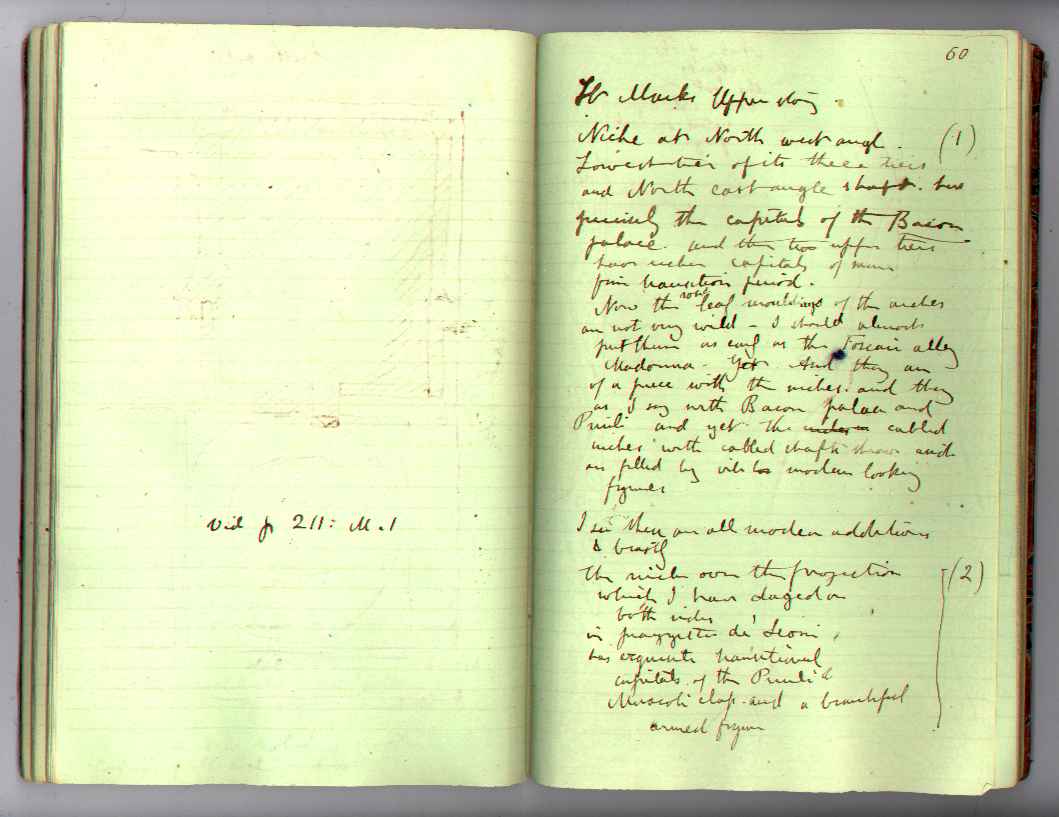 Vid p 211: M.1
60
St Marks Upper story.
Niche at North west angle. (1)
Lowest tier of its three tiers
and North east angle shaft. has
precisely the capitals of the Bacon
palace. and the two upper tiers
have richer capitals of
fine transition period.
Now the rose leaf mouldings of the arches
are not very wild - I should almost
put them as early as the Foscari alley
Madonna - Yet And they are
of a piece with the niches. and they
as I say with Bacon palace and
Priuli and yet the niches cabled
niches with cabled shafts
are filled by vile modern looking
figures
I see these are all modern additions
& beastly
The niche over the projection (2)
which I have daged on
both sides
in piazzetta de' Leoni,
has exquisite transitional
capitals of the Priuli &
class and a beautiful
armed figure